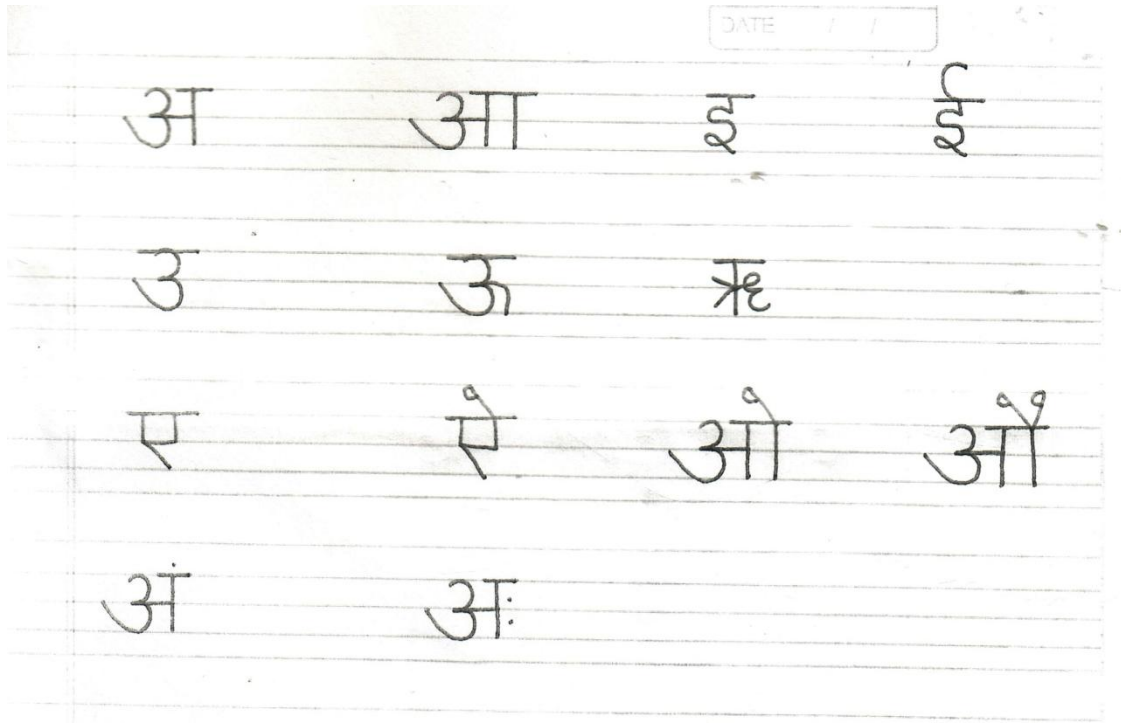 DATE / /
अ आ इ ई
उ ऊ ऋ
ए ऐ ओ औ
अं अः